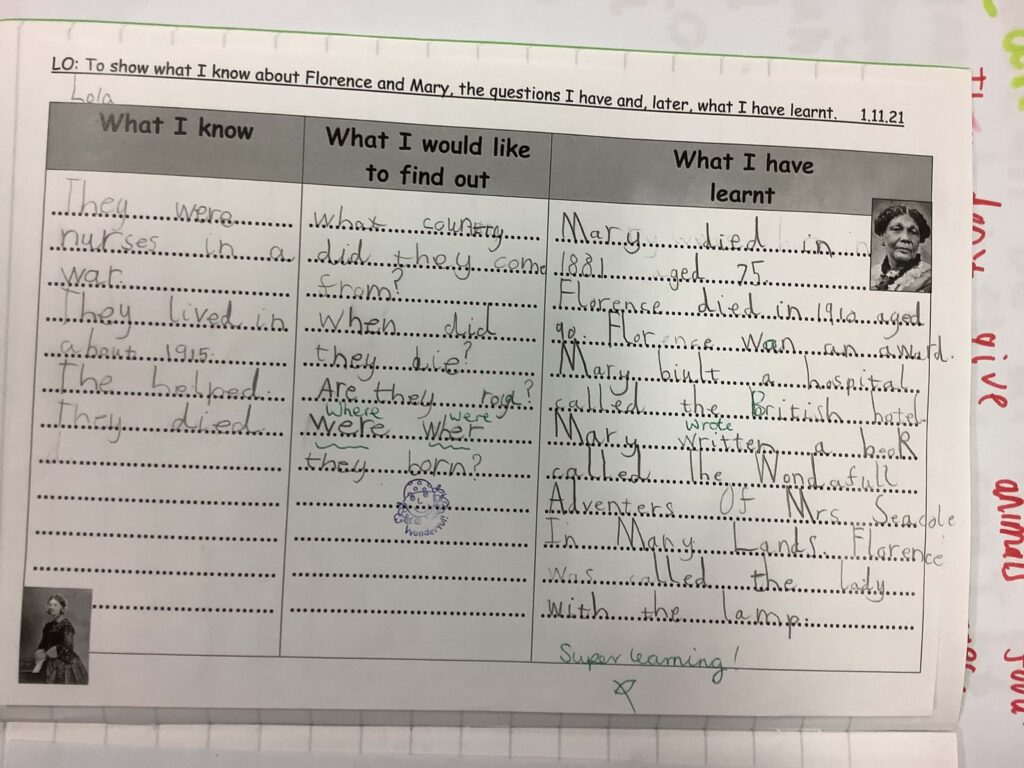 LO: To show what I know about Florence and Mary, the questions I have and, later, what I have learnt. 1.11.21
Lola
What I know
They were
nurses in a
war.
They lived in
about 1915.
The helped.
They died.
What I would like
to find out
what country
did they come
from?
When did
they die?
Are they royd?
Where were
Were wher
they born?
Wonderful!
What I have
learnt
Mary died in
1881 aged 75.
Florence died in 1910 aged
90. Florence wan an award.
Mary biult a hospital
called the British hotel.
wrote
Mary written a book
called the Wondafull
Adventers Of Mrs Seacole
In Many Lands Florence
was called the lady
with the lamp.
Super learning!
love
give
animals
food